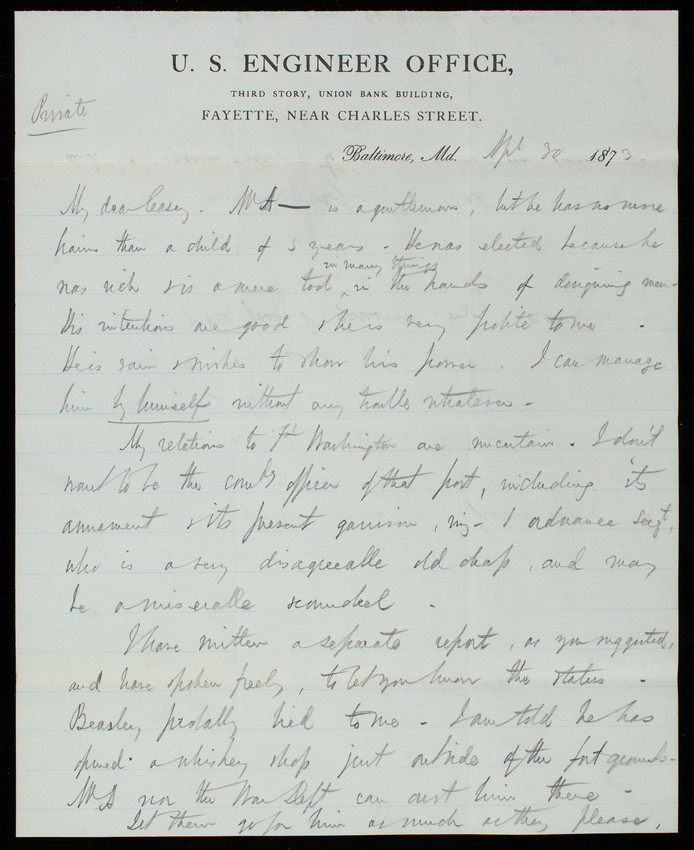 U. S. ENGINEER OFFICE,
THIRD STORY, UNION BANK BUILDING,
FAYETTE, NEAR CHARLES STREET.
Private
Baltimore, Md. Apl 30 1873.
My dear Casey. Mr A— is a gentleman, but he has no more
brains than a child of 5 years. He was elected because he
was rich & is a mere tool in many things in the hands of designing men.
His intentions are good & he is very polite to me.
He is vain & wishes to show his power. I can manage
him by himself without any trouble whatever.
My relations to Ft Washington are uncertain. I don't
want to be the comdg officer of that post, including its
armament & its present garrison, viz- 1 ordnance Sergt,
who is a very disagreeable old chap, and may
be a miserable scoundrel.
I have written a separate report, as you suggested,
and have spoken freely, to let you know the status.
Beasley probably lied to me. I am told he has
opened a whiskey shop just outside of the fort grounds.
Mr A nor the War Dept can oust him there.
Let them go for him as much as they please,